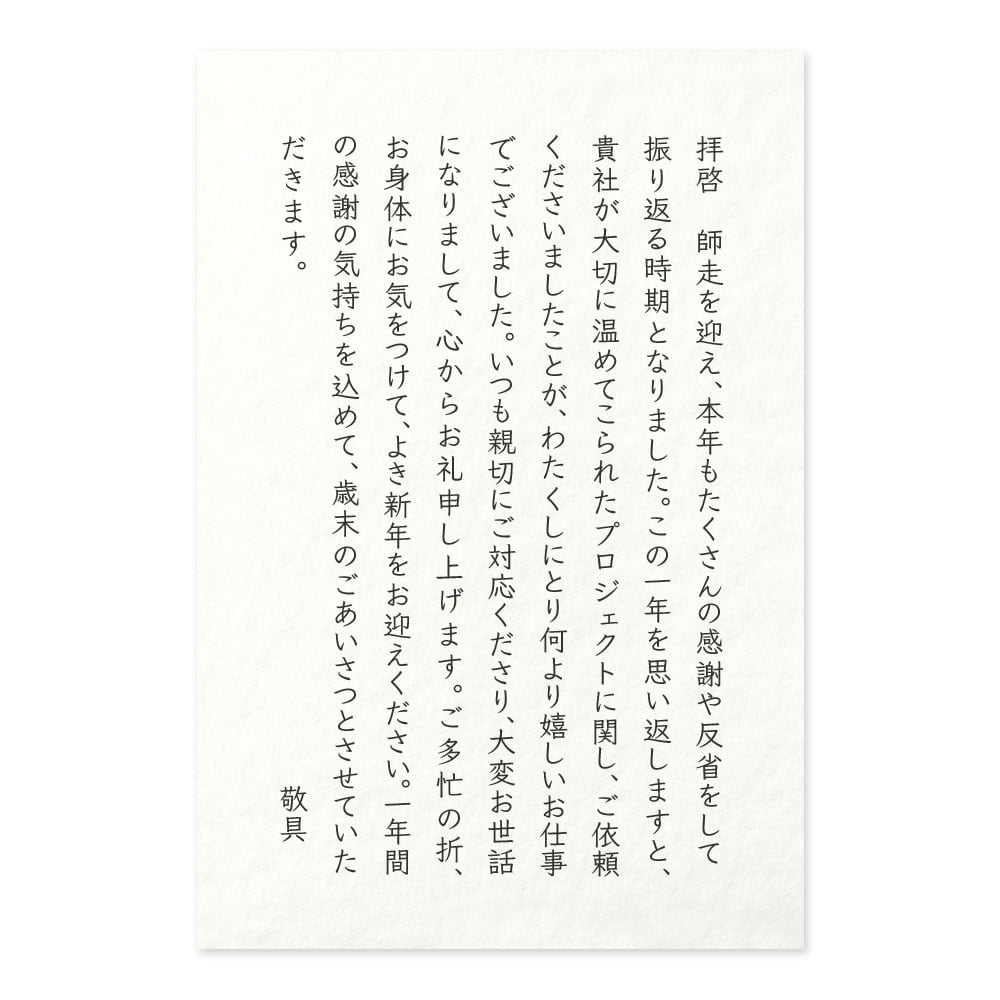 拝啓　師走を迎え、本年もたくさんの感謝や反省をして
振り返る時期となりました。この一年を思い返しますと、
貴社が大切に温めてこられたプロジェクトに関し、ご依頼
くださいましたことが、わたくしにとり何より嬉しいお仕事
でございました。いつも親切にご対応くださり、大変お世話
になりまして、心からお礼申し上げます。ご多忙の折、
お身体にお気をつけて、よき新年をお迎えください。一年間
の感謝の気持ちを込めて、歳末のごあいさつとさせていた
だきます。
敬具